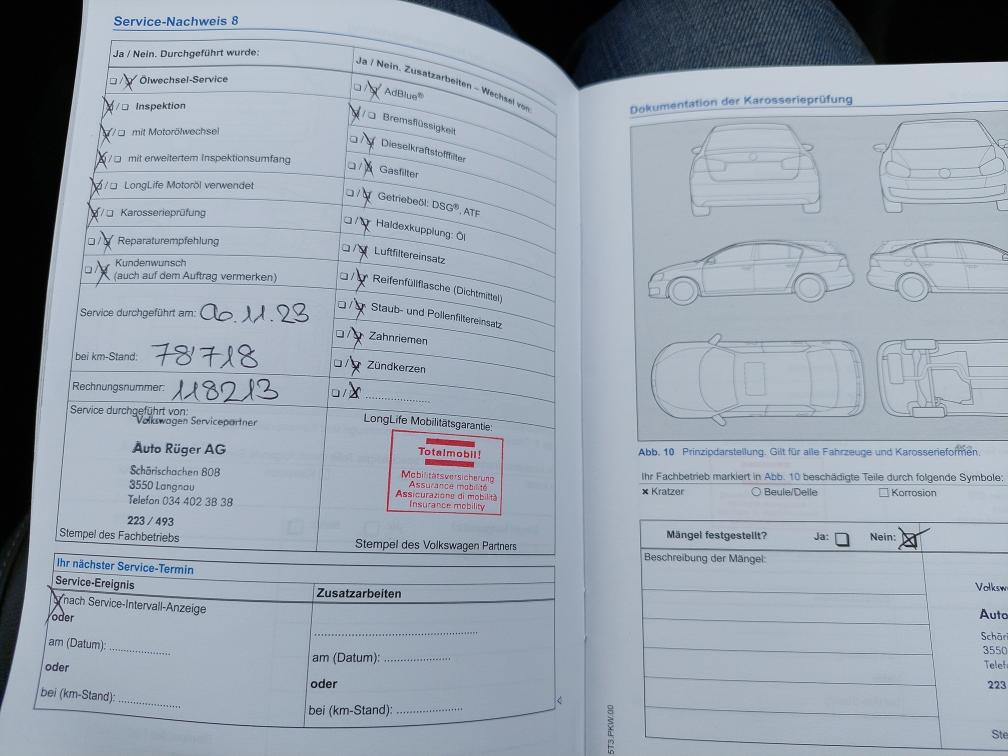 Service-Nachweis 8
Ja / Nein. Durchgeführt wurde:
❏ / ❏ Ölwechsel-Service
❏ / ❏ Inspektion
❏ / ❏ mit Motorölwechsel
❏ / ❏ mit erweitertem Inspektionsumfang
❏ / ❏ LongLife Motoröl verwendet
❏ / ❏ Karosserieprüfung
❏ / ❏ Reparaturempfehlung
❏ / ❏ Kundenwunsch
(auch auf dem Auftrag vermerken)
Service durchgeführt am: 06.11.23
bei km-Stand: 78'718
Rechnungsnummer: 118213
Service durchgeführt von:
Volkswagen Servicepartner
Auto Rüger AG
Schärischachen 808
3550 Langnau
Telefon 034 402 38 38
223 / 493
Stempel des Fachbetriebs
Ja / Nein. Zusatzarbeiten – Wechsel von:
❏ / ❏ AdBlue®
❏ / ❏ Bremsflüssigkeit
❏ / ❏ Dieselkraftstofffilter
❏ / ❏ Gasfilter
❏ / ❏ Getriebeöl: DSG®, ATF
❏ / ❏ Haldexkupplung: Öl
❏ / ❏ Luftfiltereinsatz
❏ / ❏ Reifenfüllflasche (Dichtmittel)
❏ / ❏ Staub- und Pollenfiltereinsatz
❏ / ❏ Zahnriemen
❏ / ❏ Zündkerzen
❏ / ❏ ....................
LongLife Mobilitätsgarantie:
Totalmobil!
Mobilitätsversicherung
Assurance mobilité
Assicurazione di mobilità
Insurance mobility
Stempel des Volkswagen Partners
Ihr nächster Service-Termin
Service-Ereignis
nach Service-Intervall-Anzeige
oder
am (Datum): ................
oder
bei (km-Stand): ................
Zusatzarbeiten
..........................................
am (Datum): .................
oder
bei (km-Stand): .................
Dokumentation der Karosserieprüfung
Abb. 10 Prinzipdarstellung. Gilt für alle Fahrzeuge und Karosserieformen.
Ihr Fachbetrieb markiert in Abb. 10 beschädigte Teile durch folgende Symbole:
× Kratzer ○ Beule/Delle □ Korrosion
Mängel festgestellt? Ja: ❏ Nein: ❏
Beschreibung der Mängel:
Volksw
Auto
Schäri
3550
Telef
223
Ste
5T3.PKW.00